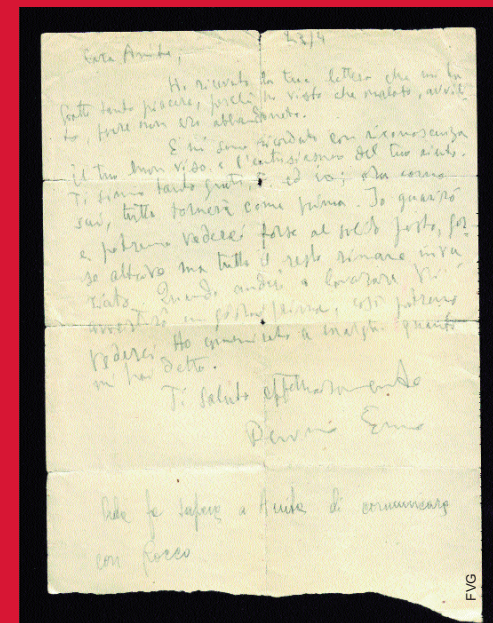 23/4
Cara Anita,
Ho ricevuto la tua lettera che mi ha
fatto tanto piacere, perché ho visto che malato, avvili-
to, pure non ero abbandonato.
E mi sono ricordato con riconoscenza
il tuo buon viso e l'entusiasmo del tuo aiuto.
Ti siamo tanto grati, ed io; ora come
sai, tutto tornerà come prima. Io guarirò
e potremo vederci forse al solito posto, for-
se altrove ma tutto il resto rimane inva
riato. Quando andrai a lavorare
avvertirò un giorno prima, così potremo
vederci. Ho comunicato a quanto
mi hai detto.
Ti saluto affettuosamente
fa sapere a Anita di comunicare
con Rocco
FVG